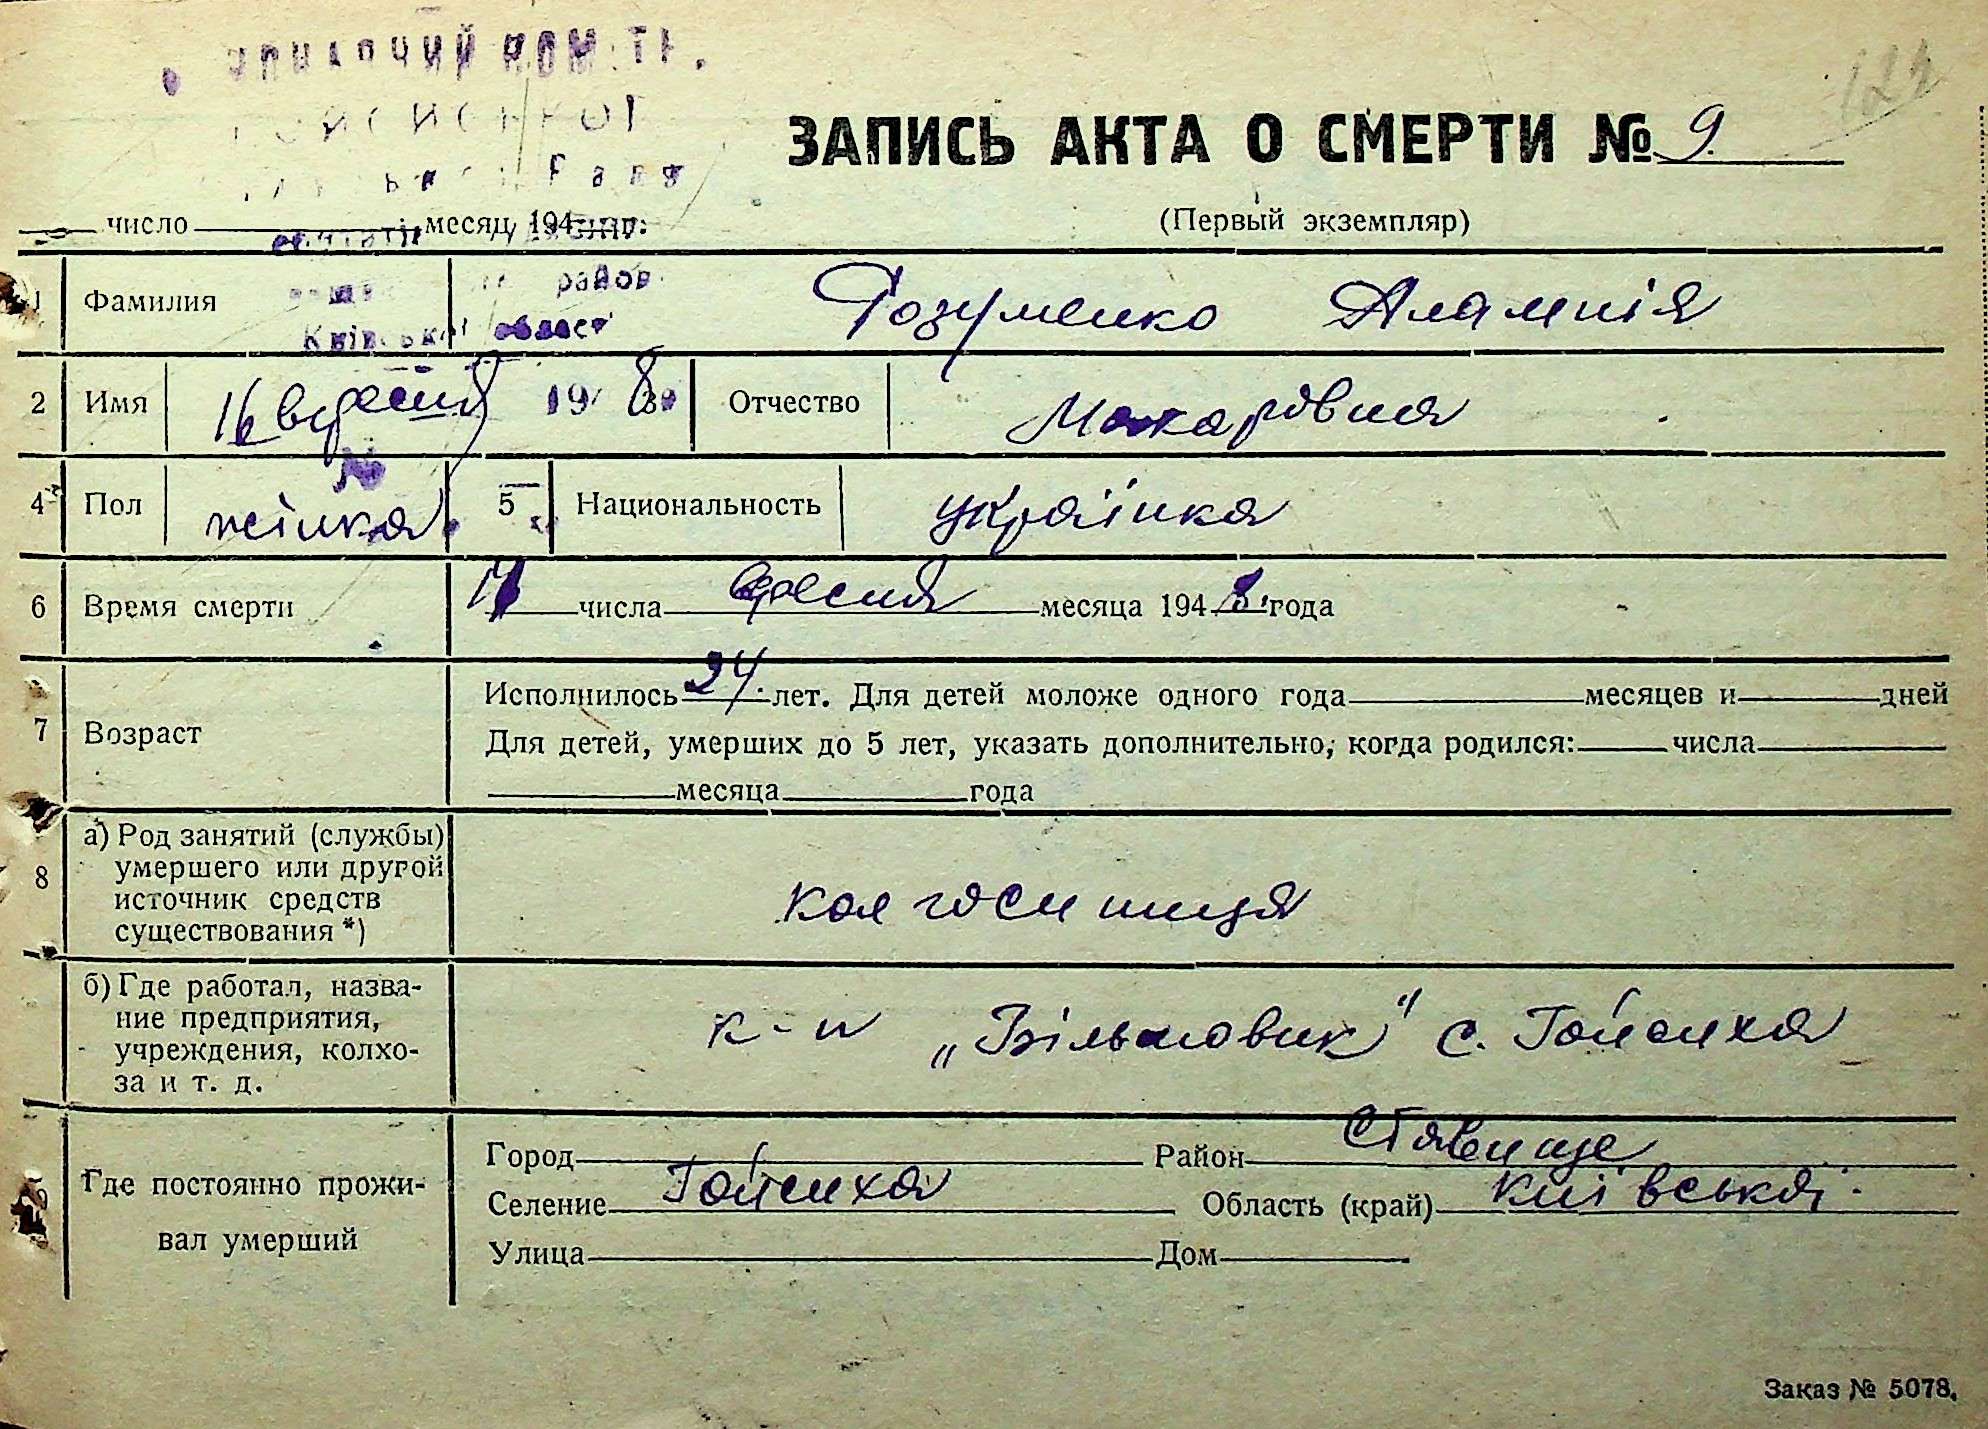 ЗАПИСЬ АКТА О СМЕРТИ № 9.
число месяц 194 г.
(Первый экземпляр)
районі
Київської області
1 Фамилия Розуменко
2 Имя 16 вересня 19 8 Отчество Макарівна
4 Пол жінка 5 Национальность українка
6 Время смерти числа вересня месяца 194 8. года
7 Возраст Исполнилось 24. лет. Для детей моложе одного года месяцев и дней
Для детей, умерших до 5 лет, указать дополнительно, когда родился: числа
месяца года
8 а) Род занятий (службы)
умершего или другой
источник средств
существования *)
колгоспниця
б) Где работал, назва-
ние предприятия,
учреждения, колхо-
за и т. д.
к-п „Більшовик" с. Гойсиха
Где постоянно прожи-
вал умерший
Город Район Ставище
Селение Гойсиха Область (край) Київській.
Улица Дом
Заказ № 5078.